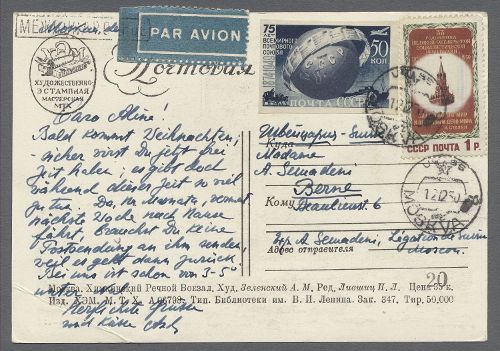 МЕЖ
Moskau, de
PAR AVION
ХУДОЖЕСТВЕННО-
ЭСТАМПНАЯ
МАСТЕРСКАЯ
МТХ
Почтовая
75 ЛЕТ
ВСЕМИРНОГО
ПОЧТОВОГО
СОЮЗА
50
КОП
ПОЧТА СССР
33
ГОДОВЩИНА
СССР ПОЧТА 1 Р.
MOSKVA
1 12 50
Cara Aline!
Bald kommt Weihnachten,
sicher wirst Du jetzt frei
Zeit haben; es gibt doch
während dieser Zeit so viel
zu tun. Da, nächste Woche nach Hause
fährt, brauchst Du keine
Postsendung an ihm senden,
weil es geht dann zurück.
Bei uns ist schon von 3-5°
unter
Herzliche Grüsse
und Küsse
Куда
Швейцария
Madame
A. Semadeni
Berne
Кому
Beaulieustr. 6
A. Semadeni, Légation de
Moscou.
Адрес отправителя
20
Москва, Химкинский Речной Вокзал, Худ. Зеленский А. М. Ред. Лившиц П. Л. Цена 35 к.
Изд. ХЭМ. М. Т. Х. А06793. Тип. Библиотеки им. В. И. Ленина. Зак. 347, Тир. 50.000